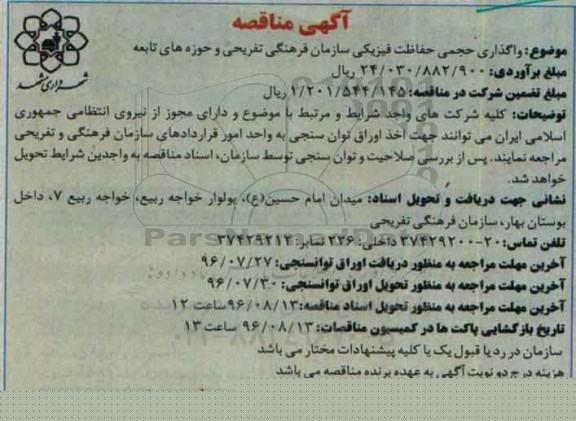 آگهی مناقصه
شهرداری مشهد
موضوع: واگذاری حجمی حفاظت فیزیکی سازمان فرهنگی تفریحی و حوزه های تابعه
مبلغ برآوردی: ۲۴/۰۳۰/۸۸۲/۹۰۰ ریال
مبلغ تضمین شرکت در مناقصه: ۱/۲۰۱/۵۴۴/۱۴۵ ریال
توضیحات: کلیه شرکت های واجد شرایط و مرتبط با موضوع و دارای مجوز از نیروی انتظامی جمهوری
اسلامی ایران می توانند جهت اخذ اوراق توان سنجی به واحد امور قراردادهای سازمان فرهنگی و تفریحی
مراجعه نمایند. پس از بررسی صلاحیت و توان سنجی توسط سازمان، اسناد مناقصه به واجدین شرایط تحویل
خواهد شد.
نشانی جهت دریافت و تحویل اسناد: میدان امام حسین(ع)، بولوار خواجه ربیع، خواجه ربیع ۷، داخل
بوستان بهار، سازمان فرهنگی تفریحی
تلفن تماس: ۲۰-۳۷۴۲۹۲۰۰ داخلی: ۲۲۶ نمابر: ۳۷۴۲۹۲۱۲
آخرین مهلت مراجعه به منظور دریافت اوراق توانسنجی: ۹۶/۰۷/۲۷
آخرین مهلت مراجعه به منظور تحویل اوراق توانسنجی: ۹۶/۰۷/۳۰
آخرین مهلت مراجعه به منظور تحویل اسناد مناقصه: ۹۶/۰۸/۱۳ ساعت ۱۲
تاریخ بازگشایی پاکت ها در کمیسیون مناقصات: ۹۶/۰۸/۱۳ ساعت ۱۳
سازمان در رد یا قبول یک یا کلیه پیشنهادات مختار می باشد
هزینه درج دو نوبت آگهی به عهده برنده مناقصه می باشد